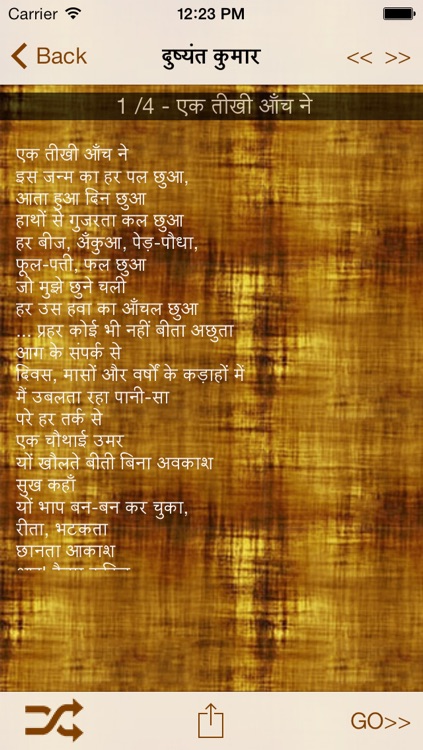 Carrier 12:23 PM
Back दुष्यंत कुमार << >>
1 /4 - एक तीखी आँच ने
एक तीखी आँच ने
इस जन्म का हर पल छुआ,
आता हुआ दिन छुआ
हाथों से गुजरता कल छुआ
हर बीज, अँकुआ, पेड़-पौधा,
फूल-पत्ती, फल छुआ
जो मुझे छुने चली
हर उस हवा का आँचल छुआ
... प्रहर कोई भी नहीं बीता अछुता
आग के संपर्क से
दिवस, मासों और वर्षों के कड़ाहों में
मैं उबलता रहा पानी-सा
परे हर तर्क से
एक चौथाई उमर
यों खौलते बीती बिना अवकाश
सुख कहाँ
यों भाप बन-बन कर चुका,
रीता, भटकता
छानता आकाश
GO>>